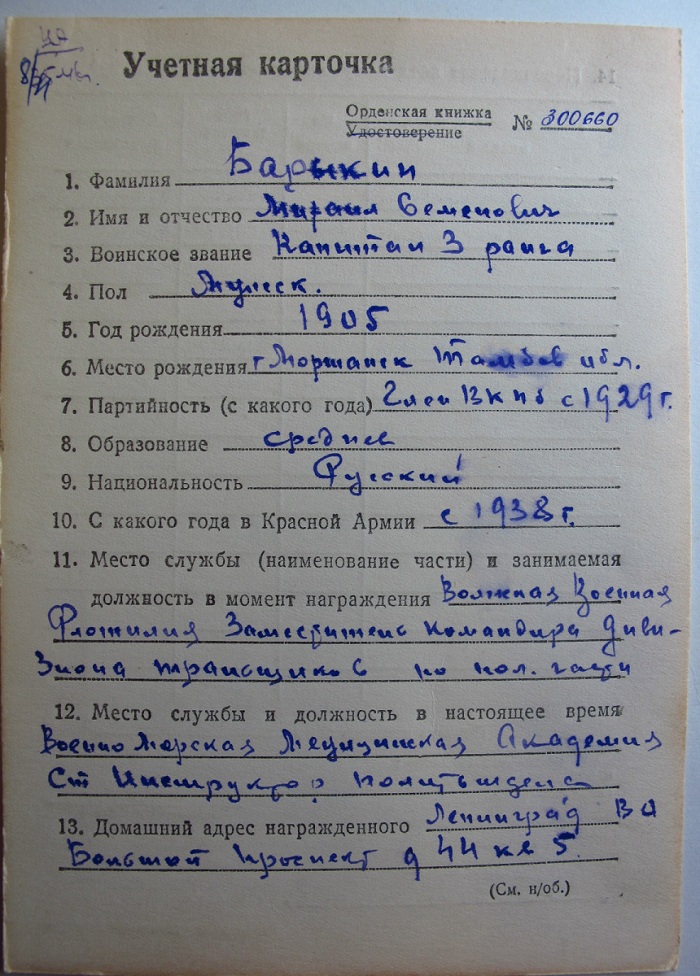 Учетная карточка
Орденская книжка
Удостоверение
№ 300660
1. Фамилия Барыкин
2. Имя и отчество Михаил Семенович
3. Воинское звание Капитан 3 ранга
4. Пол Мужск.
5. Год рождения 1905
6. Место рождения г Моршанск Тамбов обл.
7. Партийность (с какого года) Член ВКпб с 1929 г.
8. Образование среднее
9. Национальность Русский
10. С какого года в Красной Армии с 1938 г.
11. Место службы (наименование части) и занимаемая
должность в момент награждения Волжская Военная
Флотилия Заместитель командира диви-
зиона тральщиков по пол. части
12. Место службы и должность в настоящее время
Военно Морская Медицинская Академия
Ст Инструктор политотдела
13. Домашний адрес награжденного Ленинград ВО
Большой проспект д 44 кв 5.
(См. н/об.)